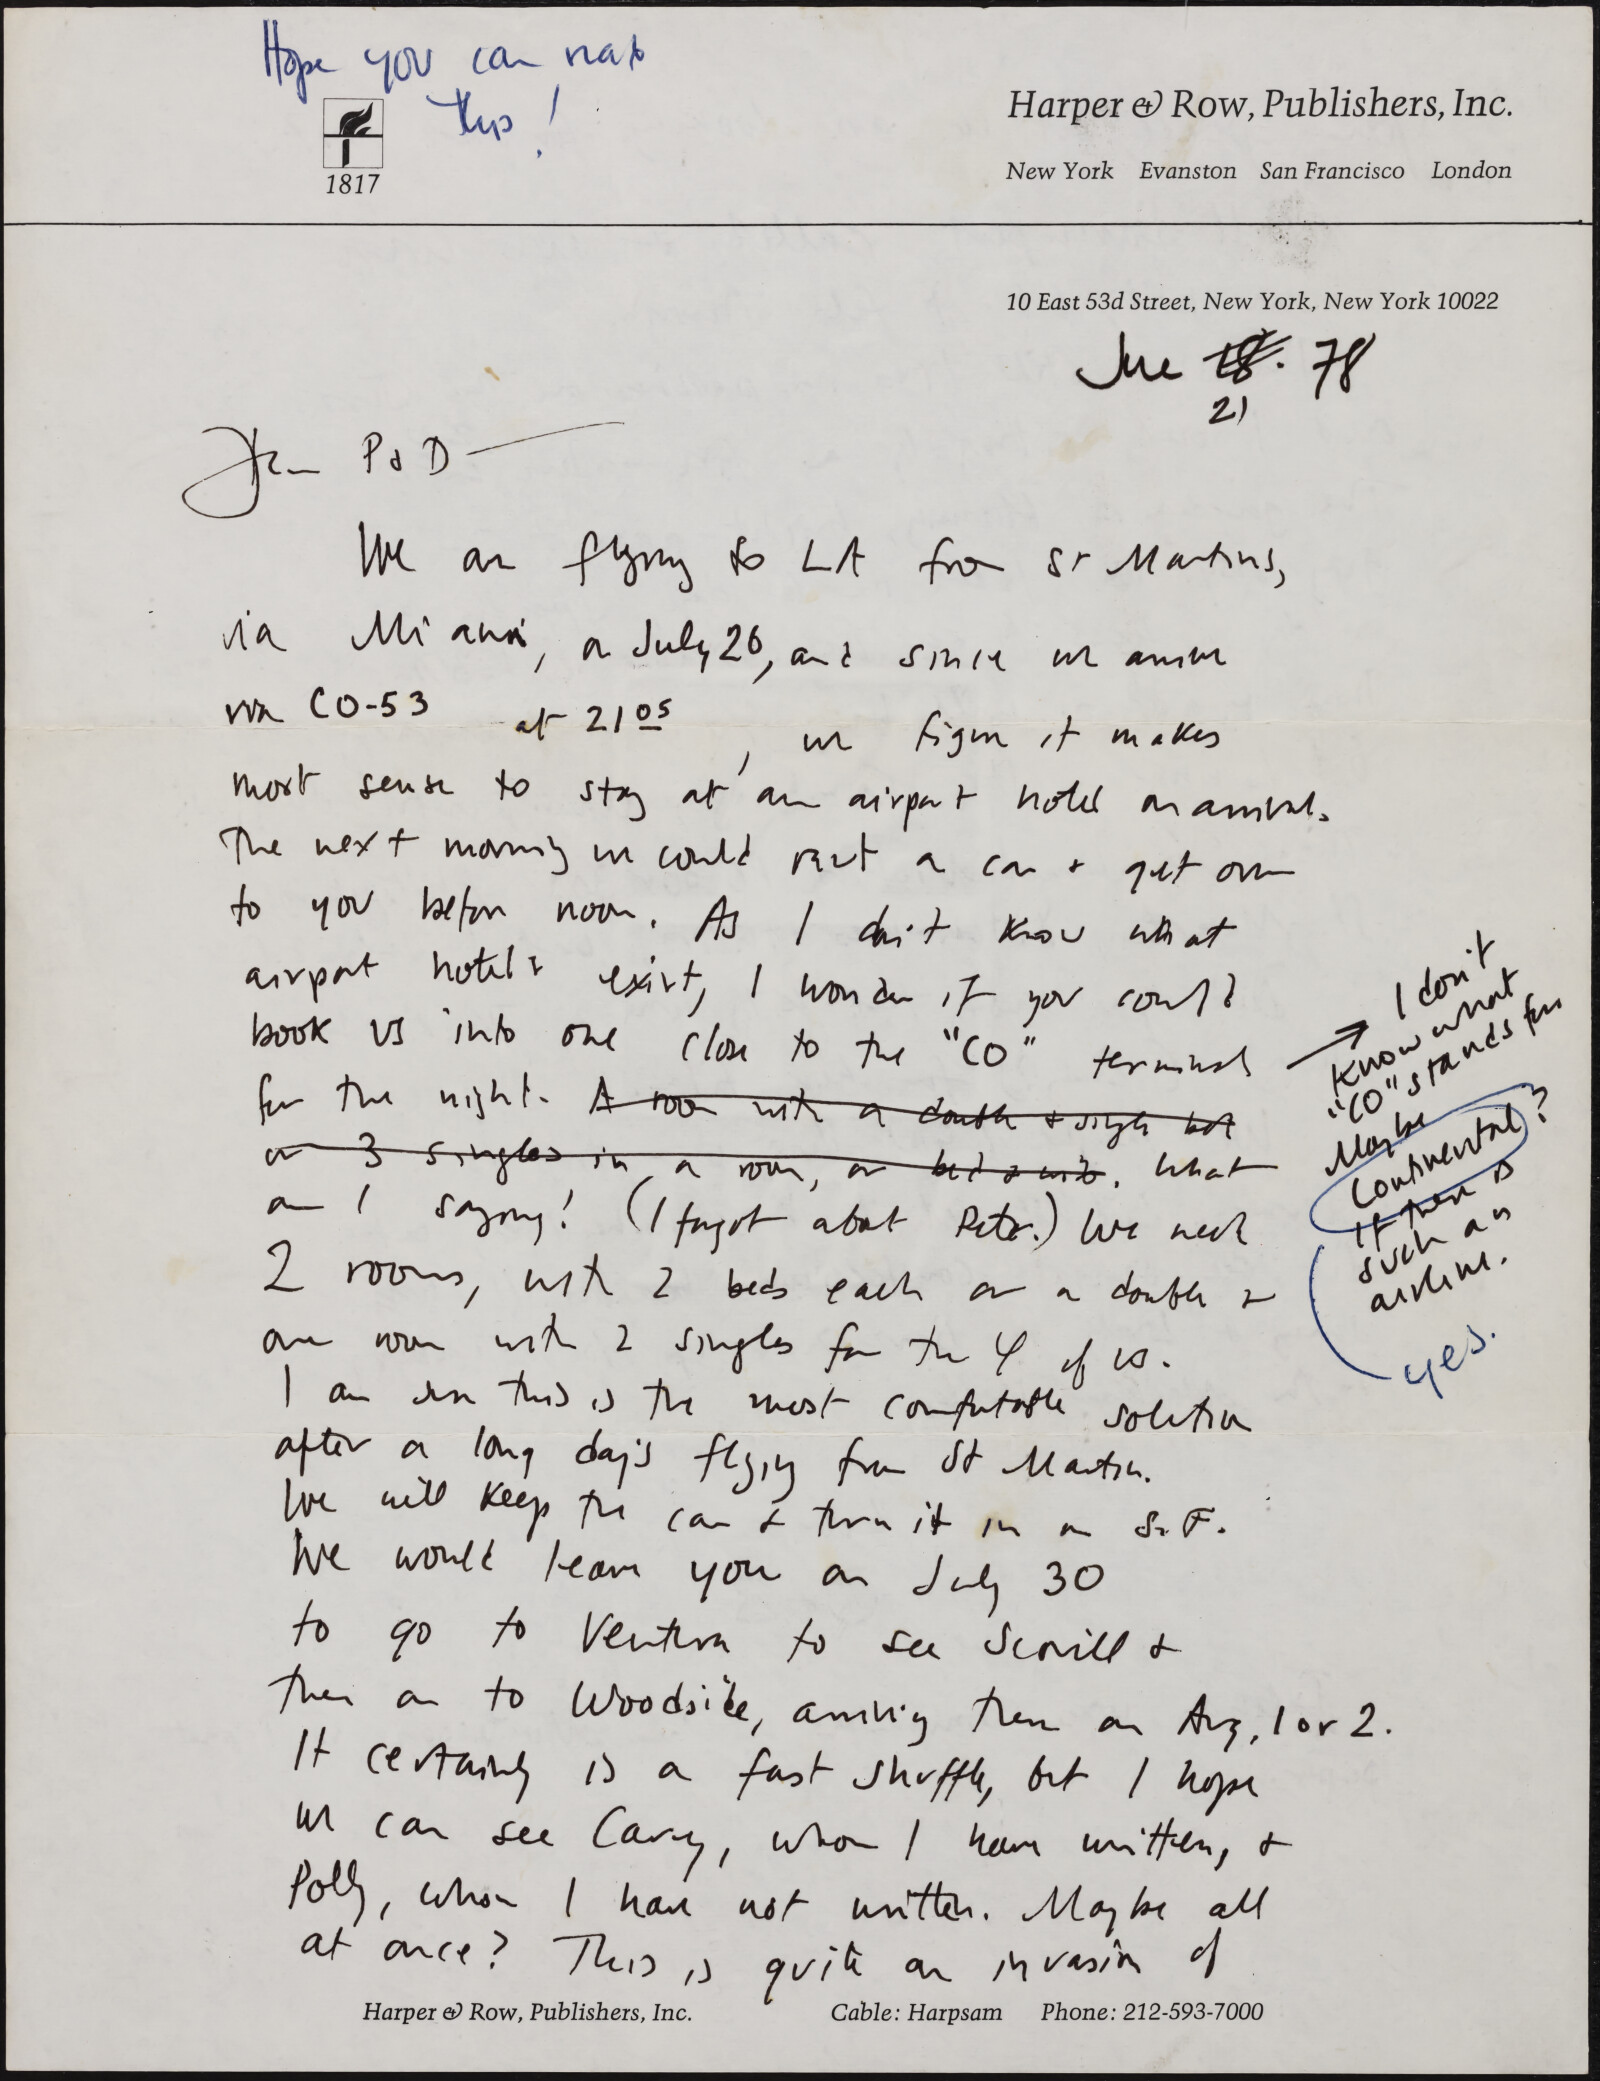 Hope you can read
this!
1817
Harper & Row, Publishers, Inc.
New York Evanston San Francisco London
10 East 53d Street, New York, New York 10022
June 18. 78
21
Dear P & D —
We are flying to LA from St Martins,
via Miami, on July 26, and since we arrive
via CO-53 at 21 05, we figure it makes
most sense to stay at an airport hotel on arrival.
The next morning we could rent a car & get over
to you before noon. As I don't know what
airport hotels exist, I wonder if you could
book us into one close to the "CO" terminal
for the night. A room with a double & single bed
or 3 singles in a room, or bed & crib. What
am I saying! (I forgot about Peter.) We need
2 rooms, with 2 beds each or a double &
one room with 2 singles for the 4 of us.
I am sure this is the most comfortable solution
after a long day's flying from St Martin.
We will keep the car & turn it in in S.F.
We would leave you on July 30
to go to Ventura to see Scovill &
then on to Woodside, arriving there on Aug. 1 or 2.
It certainly is a fast shuffle, but I hope
we can see Carey, whom I have written, &
Polly, whom I have not written. Maybe all
at once? This is quite an invasion of
→ I don't
know what
"CO" stands for
Maybe
Continental?
if there is
such an
airline.
yes.
Harper & Row, Publishers, Inc. Cable: Harpsam Phone: 212-593-7000